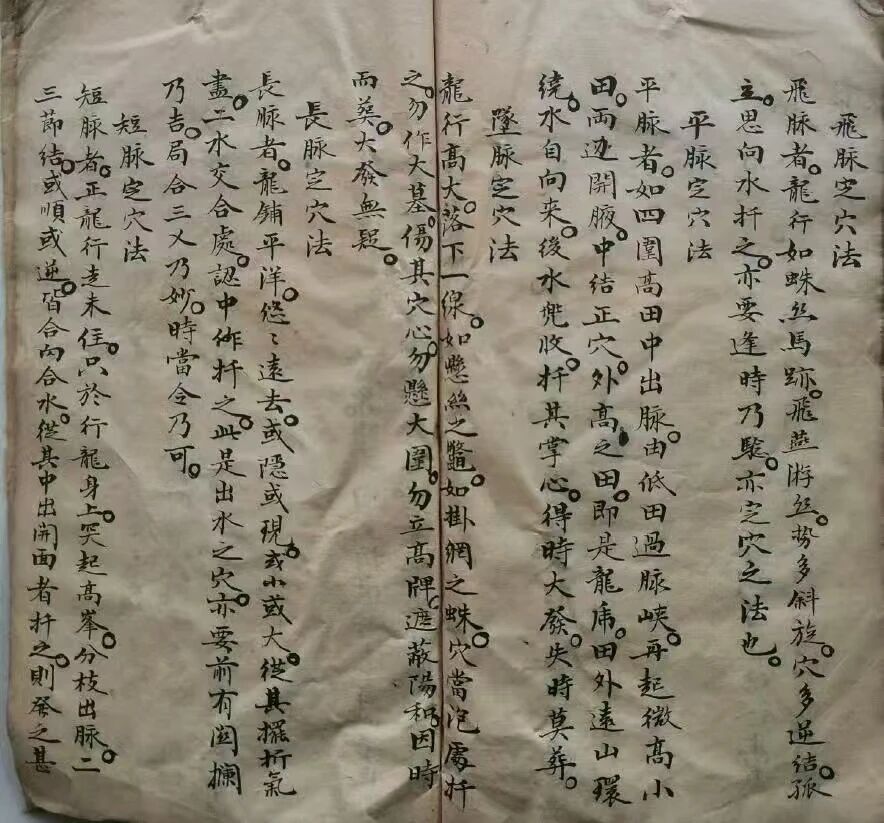 飛脉定穴法
飛脉者。龍行如蛛丝馬跡。飛燕游丝。势多斜旋。穴多逆结。孤
立。思向水扦之。亦要逢時乃驗。亦定穴之法也。
平脉定穴法
平脉者。如四圍高田中出脉。由低田過脉峽。再起微高小
田。両边開腋。中结正穴。外高之田。即是龍虎。田外遠山環
绕。水自向来。後水兠收。扦其掌心。得時大發。失時莫葬。
墜脉定穴法
龍行高大。落下一線。如懸絲之鼈。如掛網之蛛。穴當泡處扦
之。勿作大墓。傷其穴心。勿懸大圍。勿立高牌。遮蔽陽和。因時
而葬。大發無疑。
長脉定穴法
長脉者。龍鋪平洋。悠〻遠去。或隠或現。或小或大。從其擺折氣
盡。二水交合處。認中作扦之。此是出水之穴。亦要前有関攔
乃吉。局合三乂乃妙。時當令乃可。
短脉定穴法
短脉者。正龍行走未住。只於行龍身上。突起高峯。分枝出脉。二
三節结。或順或逆。皆合内合水。從其中出開面者扦之。則發之甚